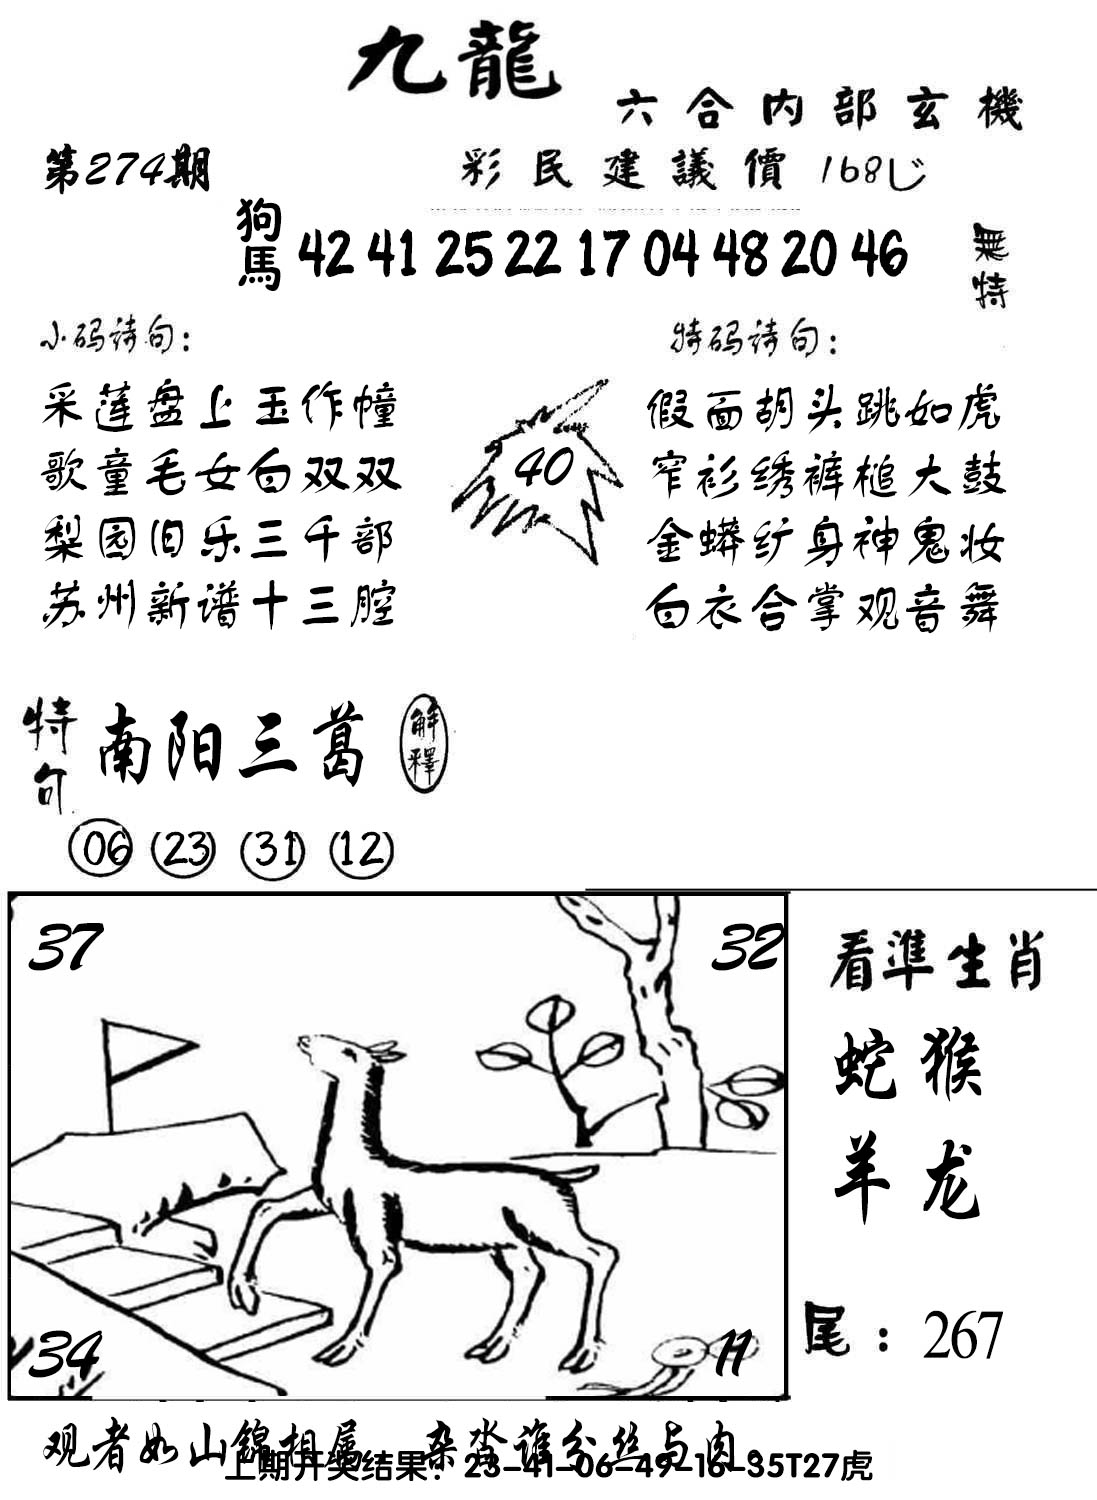 九龍
六合内部玄機
第274期
彩民建議價 168
狗馬 42 41 25 22 17 04 48 20 46 無特
小码诗句：
特码诗句：
采莲盘上玉作幢
歌童毛女白双双
梨园旧乐三千部
苏州新谱十三腔
40
假面胡头跳如虎
窄衫绣裤槌大鼓
金蟒纩身神鬼妆
白衣合掌观音舞
特句 南阳三葛 解釋
06 (23) (31) (12)
37
32
34
11
看準生肖
蛇猴
羊龙
尾：267
观者如山錦相属 杂沓谁分丝与肉。
上期开奖结果：23-41-06-49-16-35T27虎